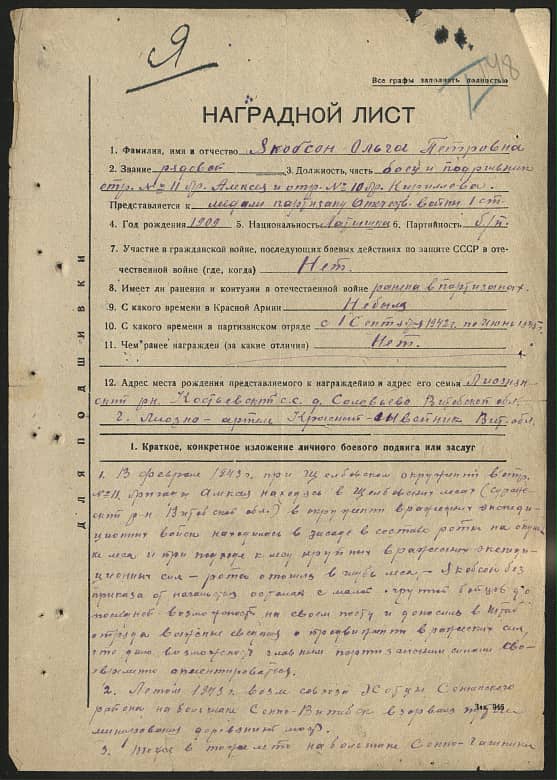 Я
48
Все графы заполнять полностью
НАГРАДНОЙ ЛИСТ
1. Фамилия, имя и отчество Якобсон Ольга Петровна
2. Звание рядовой 3. Должность, часть боец и подрывник
отр. №11 бр. Алексея и отр. №10 бр. Кириллова.
Представляется к медали партизану Отечеств. войны 1 ст.
4. Год рождения 1909 5. Национальность Латышка 6. Партийность б/п.
7. Участие в гражданской войне, последующих боевых действиях по защите СССР в оте-
чественной войне (где, когда) Нет.
8. Имеет ли ранения и контузии в отечественной войне ранена в партизанах.
9. С какого времени в Красной Армии Не была
10. С какого времени в партизанском отряде с 1 Сентября 1942 г. по Июнь
11. Чем ранее награжден (за какие отличия) Нет.
12. Адрес места рождения представляемого к награждению и адрес его семьи Лиознян
ский рн. с.с. д. Соловьево Витебской обл.
г. Лиозно-артель Красный Вит. обл.
ДЛЯ ПОДШИВКИ
1. Краткое, конкретное изложение личного боевого подвига или заслуг
1. В феврале 1943 г. при Щелбовском окружении в отр.
№11 бригады Алексея находясь в Щелбовских лесах (Сураж-
ский р-н Витебской обл.) в окружении вражеских экспеди-
ционных войск находилась в засаде в составе роты на опушке
леса и при подходе к лесу крупных вражеских экспеди-
ционных сил – рота отошла в глубь леса, – Якобсон без
приказа от начальства осталась с малой группой бойцов до
последней возможности на своем посту и доносила в штаб
отряда важные сведения о продвижении вражеских сил,
что дало возможность главным партизанским силам сво-
евременно ориентироваться.
2. Летом 1943 г. возле совхоза Сеннинского
района на большаке Сенно-Витебск взорвала
минирования деревянный мост.
Зак. 946
3. Тогда же на большаке Сенно-Чашники